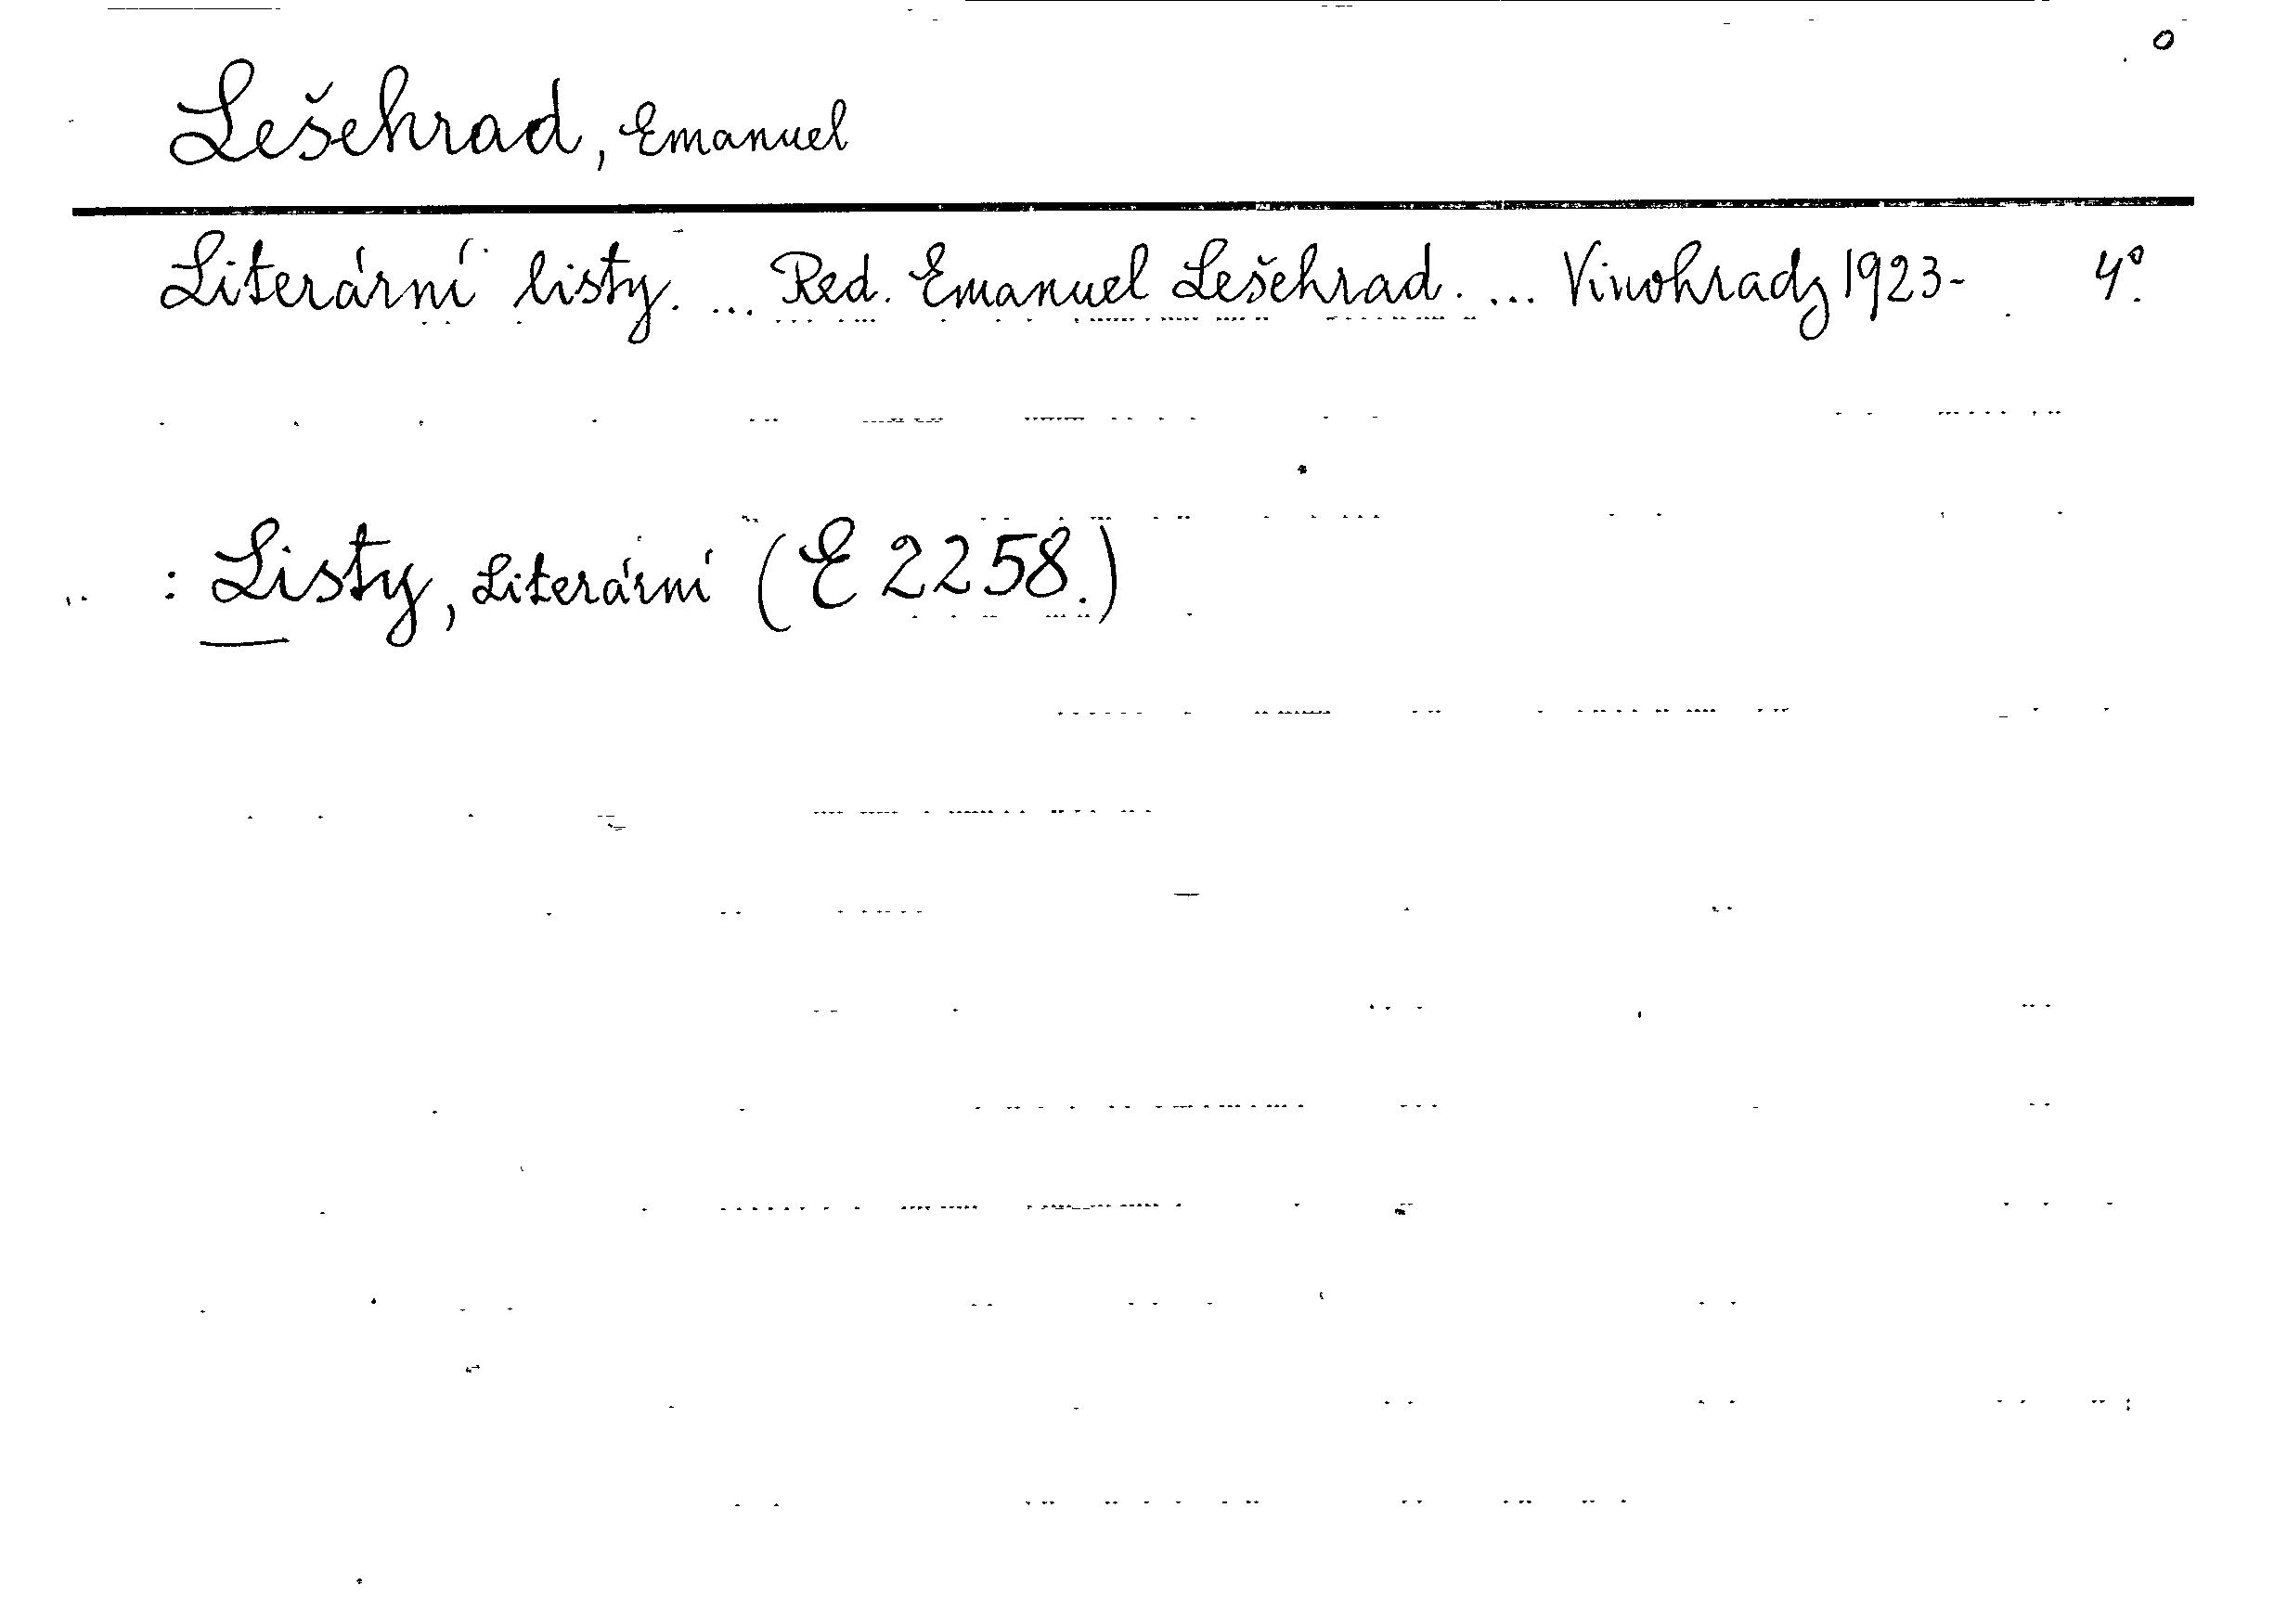 o
Lešehrad, Emanuel
Literární listy. ... Red. Emanuel Lešehrad. ... Vinohrady 1923- 4°.
: Listy, Literární (E 2258.)